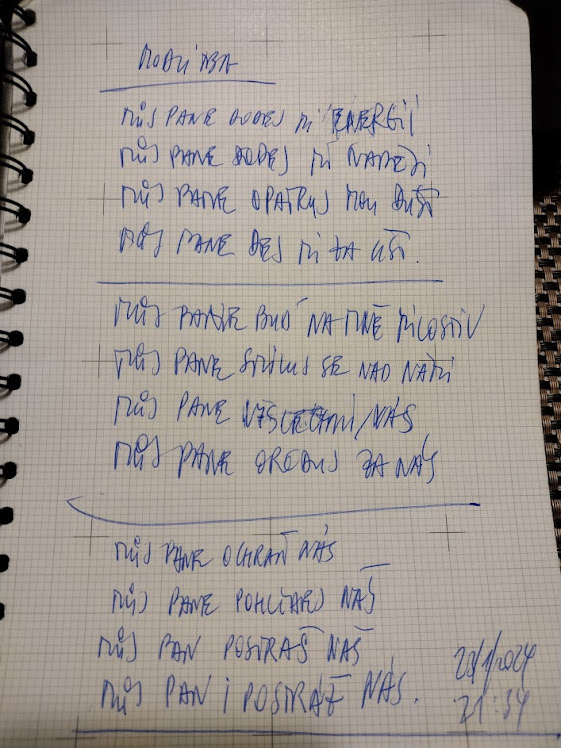 MODLITBA
MŮJ PANE DODEJ MI ENERGII
MŮJ PANE DODEJ MI NADĚJI
MŮJ PANE OPATRUJ MOU DUŠI
MŮJ PANE DEJ MI ZA UŠI.
MŮJ PANE BUĎ NA MNĚ MILOSTIV
MŮJ PANE SMILUJ SE NAD NAMI
MŮJ PANE NÁS
MŮJ PANE ORODUJ ZA NÁS
MŮJ PANE OCHRAŇ NÁS
MŮJ PANE POHLÍDEJ NÁŠ
MŮJ PAN POSTRAŠ NÁŠ
MŮJ PAN I POSTRÁŽ NÁS.
21:34